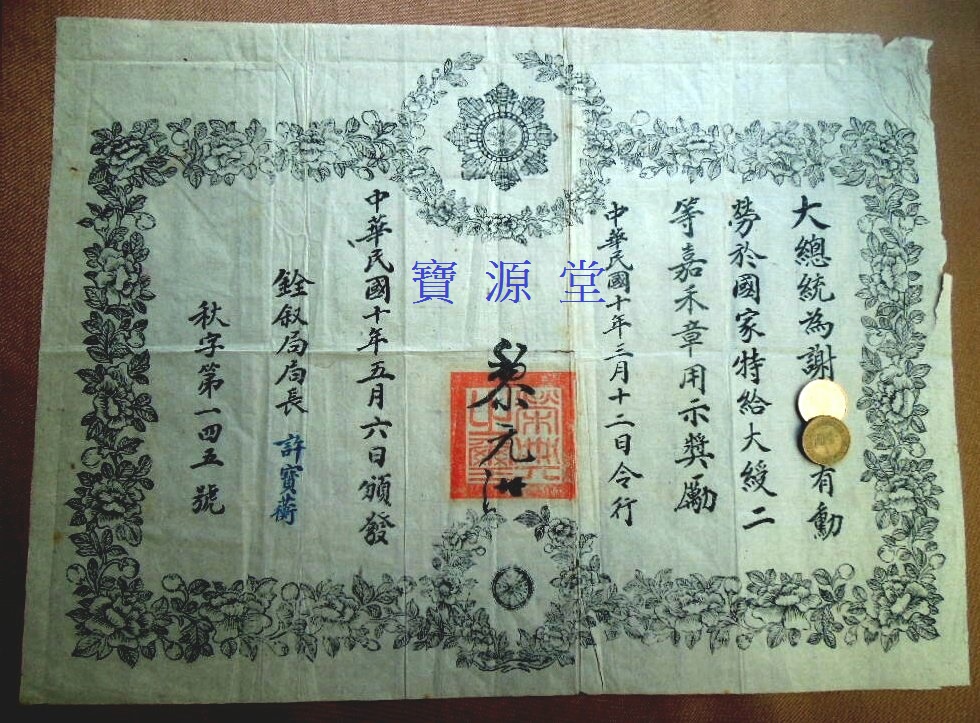 大總統為謝有勳
勞於國家特給大綬二
等嘉禾章用示獎勵
中華民國十年三月十二日令行
黎元洪
榮典之璽
中華民國十年五月六日頒發
銓叙局局長 許寶蘅
秋字第一四五號
寶源堂